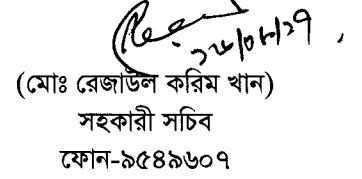 (মোঃ রেজাউল করিম খান)
সহকারী সচিব
ফোন-৯৫৪৯৬০৭